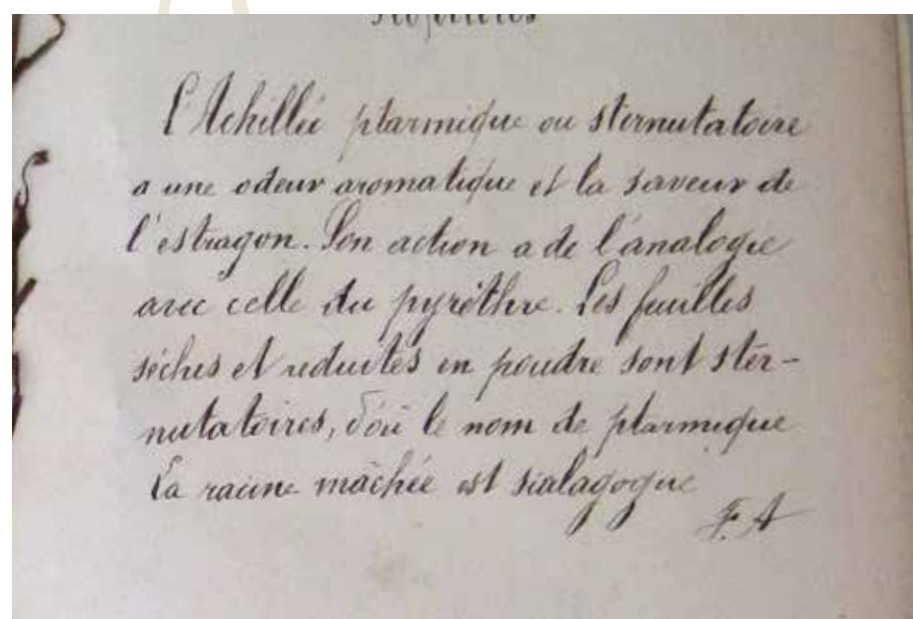 Propriétés
L'Achillée ptarmique ou sternutatoire
a une odeur aromatique et la saveur de
l'estragon. Son action a de l'analogie
avec celle du pyrèthre. Les feuilles
sèches et réduites en poudre sont ster-
nutatoires, d'où le nom de ptarmique
La racine mâchée est sialagogue
F. A